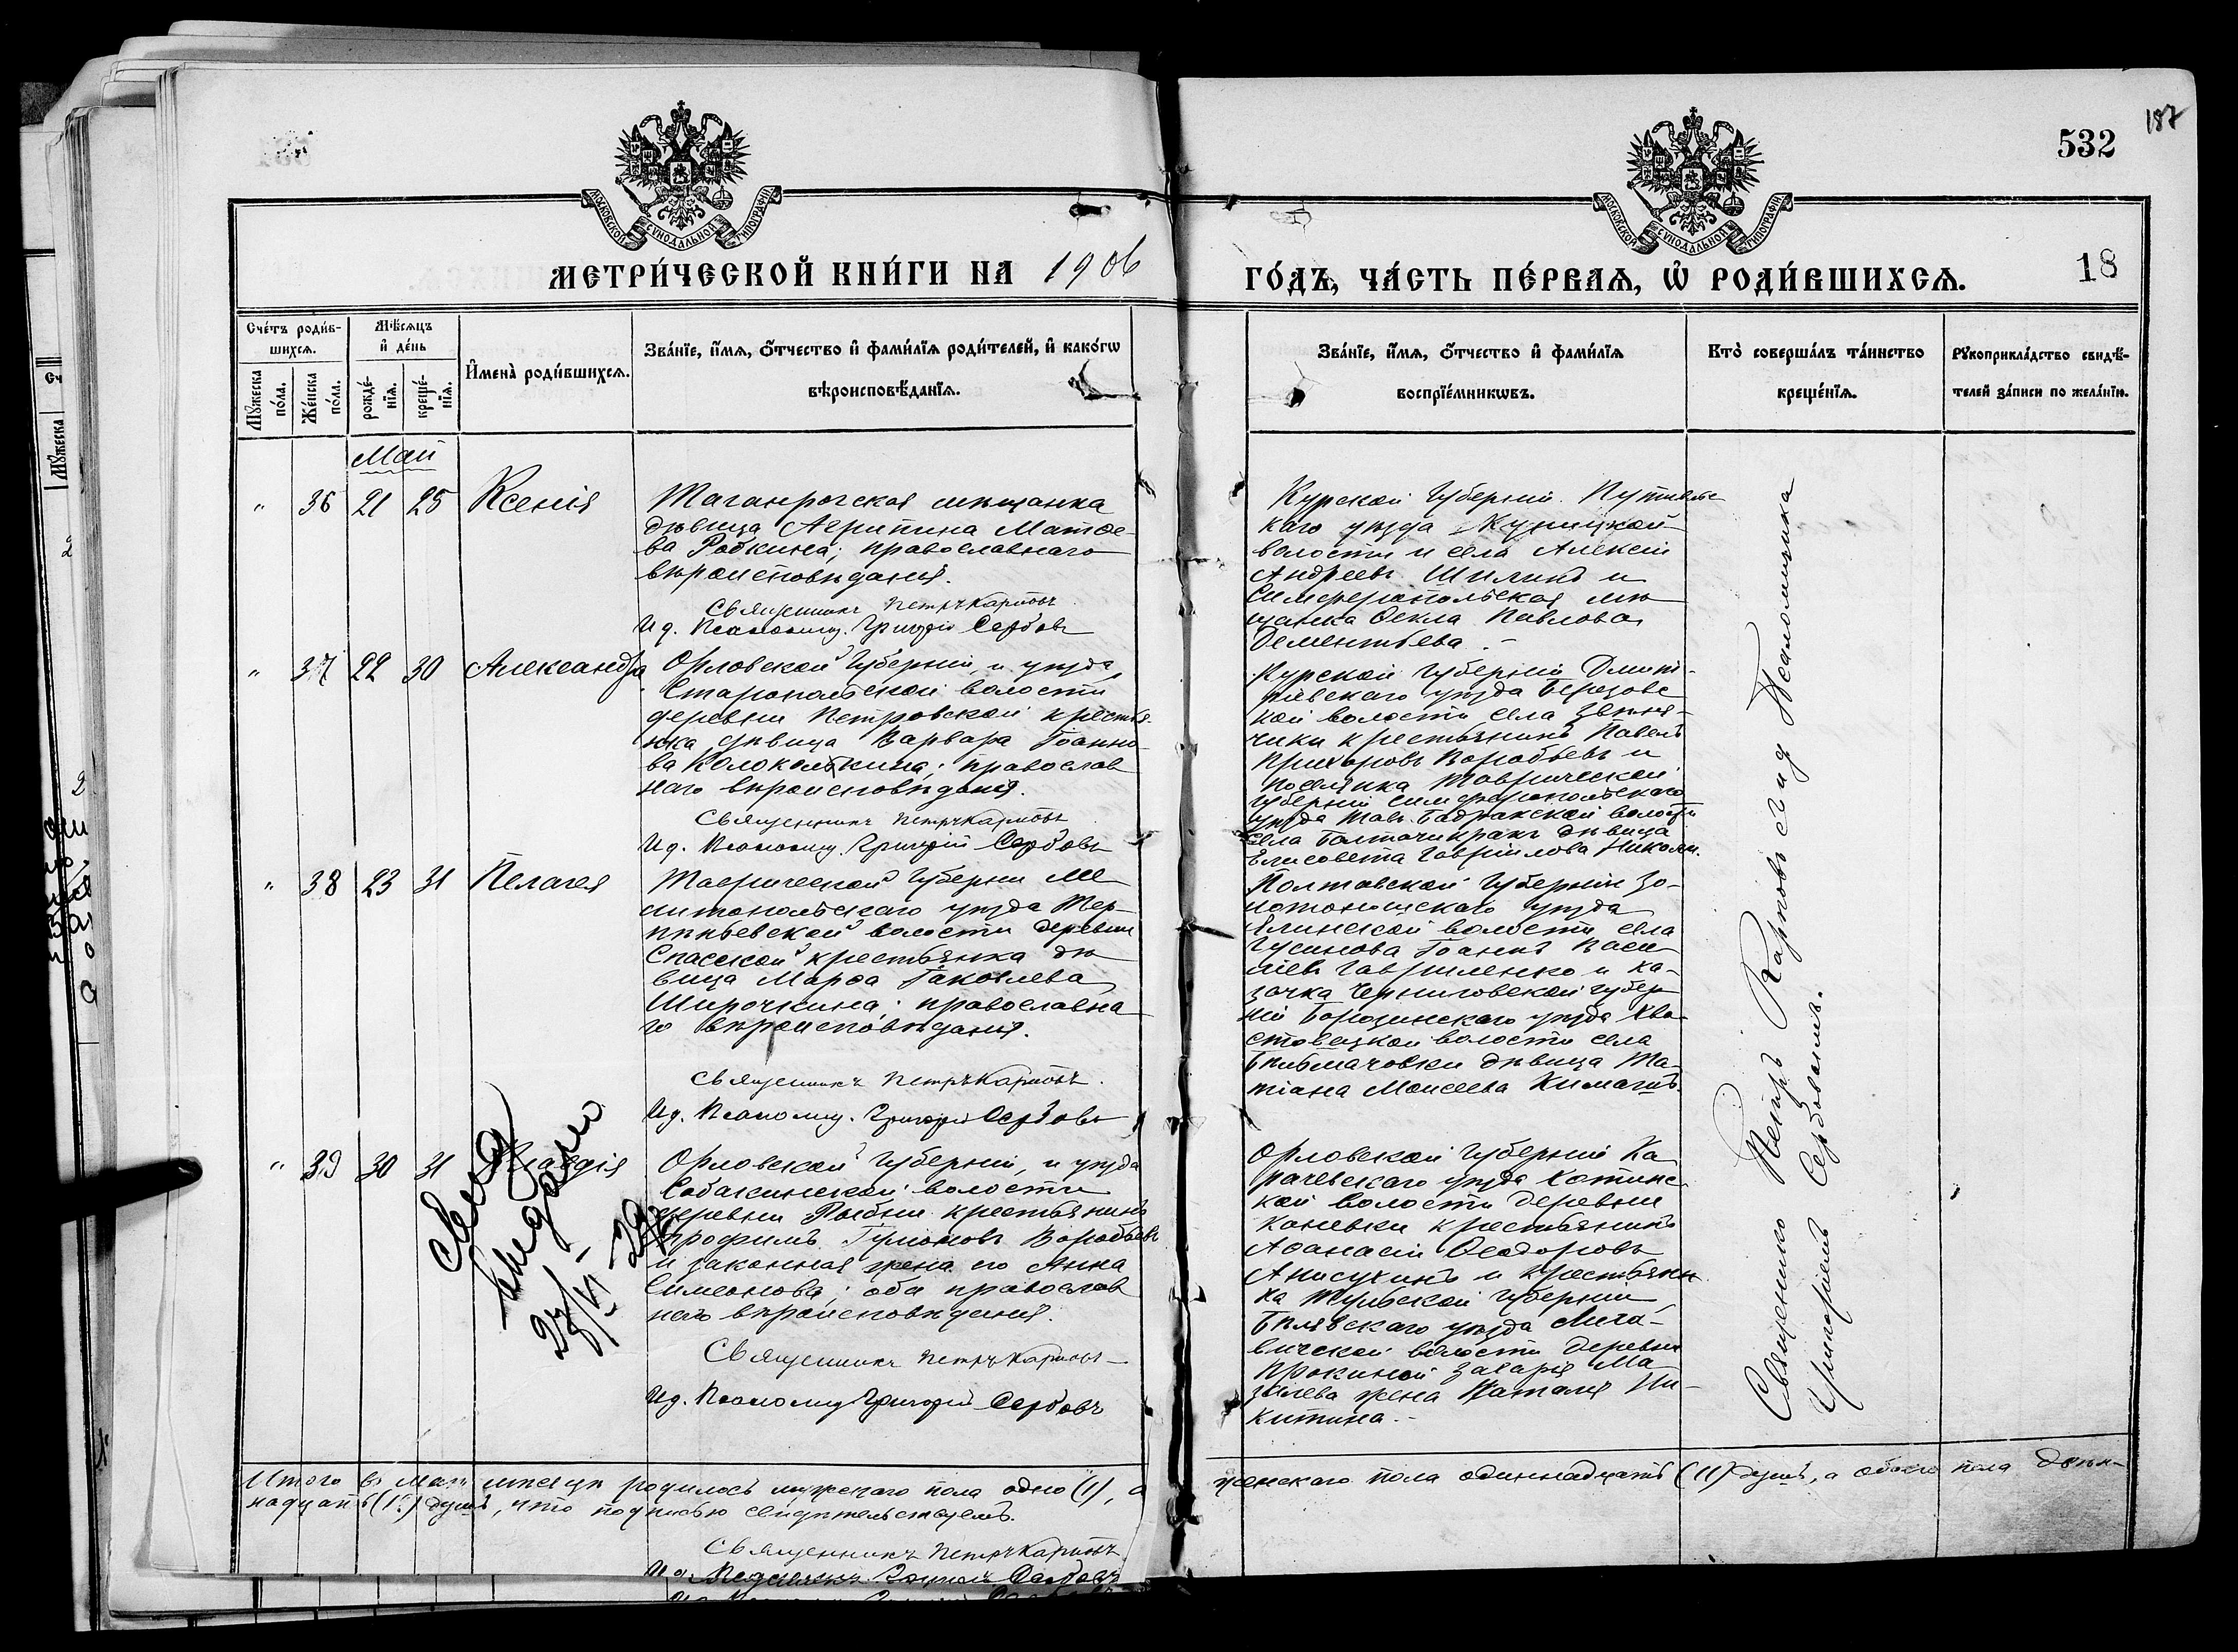 187
532
18
МОСКОВСКОЙ СѴНОДАЛЬНОЙ ТИПОГРАФІИ
МОСКОВСКОЙ СѴНОДАЛЬНОЙ ТИПОГРАФІИ
МЕТРИ́ЧЕСКОЙ КНИ́ГИ НА 1906
ГО́ДЪ, ЧА́СТЬ ПЕ́РВАѦ, Ѽ РОДИ́ВШИХСѦ.
Счéтъ роди́в-
шихсѧ.
Мꙋ́жеска
по́ла.
Же́нска
по́ла.
Мѣ́сѧцъ
и҆ де́нь
рожде́-
нїѧ.
креще́-
нїѧ.
И҆мена̀ роди́вшихсѧ.
Зва́нїе, и҆́мѧ, ѻ҆́тчество и҆ фами́лїѧ роди́телей, и҆ како́гѡ
вѣроисповѣ́данїѧ.
Зва́нїе, и҆́мѧ, ѻ҆́тчество и҆ фами́лїѧ
воспрїе́мникѡвъ.
Кто̀ соверша́лъ та́инство
креще́нїѧ.
Рꙋкоприкла́дство свидѣ́-
телей за́писи по жела́нїю.
Май
" 36 21 25 Ксенія
Таганрогская мѣщанка
дѣвица Агрипина Матѳе-
ва Рабкина; православнаго
вѣроисповѣданія.
Священникъ Петръ Карповъ
И д. Псаломщ. Григорій Сербовъ
Курской губерніи Путивльс
каго уѣзда
волости и села Алексій
Андреевъ Шилинъ и
Симферопольская мѣ
щанка Ѳекла Павлова
Дементьева. -
" 37 22 30 Александра
Орловской губерніи, и уѣзда,
Старопольской волости
деревни Петровской крестья-
нка дѣвица Варвара Іоанно-
ва Колоколкина; православ
наго вѣроисповѣданія.
Священникъ Петръ Карповъ
И д. Псаломщ. Григорій Сербовъ
Курской губерніи Дмит-
ріевскаго уѣзда Березовс
кой волости села Звѣня-
чики крестьянинъ Павелъ
Прихоровъ Воробьевъ и
поселянка Таврической
губерніи Симферопольскаго
уѣзда Тав. Бадракской волости
села дѣвица
Елисавета Гавриилова
" 38 23 31 Пелагея
Таврической губерніи Ме
литопольскаго уѣзда Тер-
пѣньевской волости деревни
Спасской крестьянка дѣ
вица Марѳа Іаковлева
Широчкина; православна
го вѣроисповѣданія.
Священникъ Петръ Карповъ.
И д. Псаломщ. Григорій Сербовъ
Полтавской губерніи Зо-
лотоношскаго уѣзда
волости села
Іоаннъ Васи-
ліевъ Гавриленко и ка-
зачка Черниговской губер
ніи Борзинскаго уѣзда
волости села
дѣвица Та-
тіана Моисеева
" 39 30 31
Орловской губерніи, и уѣзда
Собакинской волости
деревни Рыбни крестьянинъ
Трофимъ Воробьевъ
и законная жена его Анна
Симеонова; оба православ
наго вѣроисповѣданія.
Священникъ Петръ Карповъ
И д. Псаломщ Григорій Сербовъ
Орловской губерніи Ка
рачевскаго уѣзда
кой волости деревни
Каневки крестьянинъ
Аѳанасій Ѳеодоровъ
Анисухинъ и крестьянк
ка Тульской губерніи
Бѣлевскаго уѣзда
волости деревни
Прокиной Захарія Ма
жена Наталія Ни-
китина. -
Священникъ Петръ Карповъ съ и д Псаломщика
Григоріемъ Сербовымъ.
Итого въ маѣ мѣсяцѣ родилось мужескаго пола одно (1), а
женскаго пола одиннадцать (11) душъ, а обоего пола двѣн-
надцать (12) душъ, что подписью свидѣтельствуемъ.
Священникъ Петръ Карповъ
И д. Псаломщ. Григорій Сербовъ